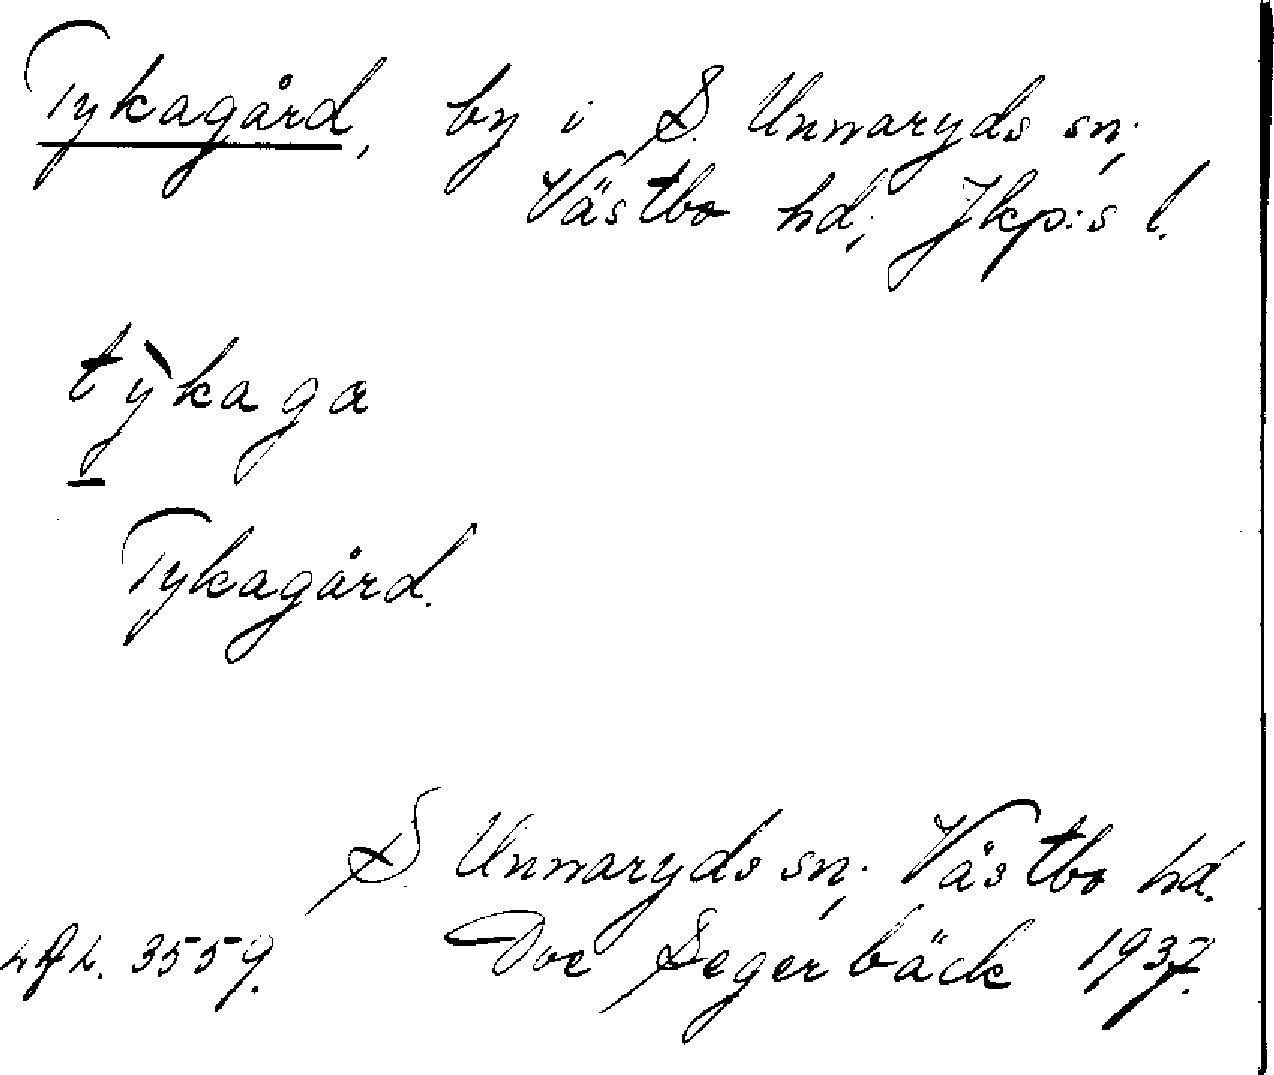 Tykagård, by i S. Unnaryds sn;
Västbo hd; Jkp:s l.
tỳkaga
Tykagård.
S. Unnaryds sn; Västbo hd.
3559. Doe Segerbäck 1937.